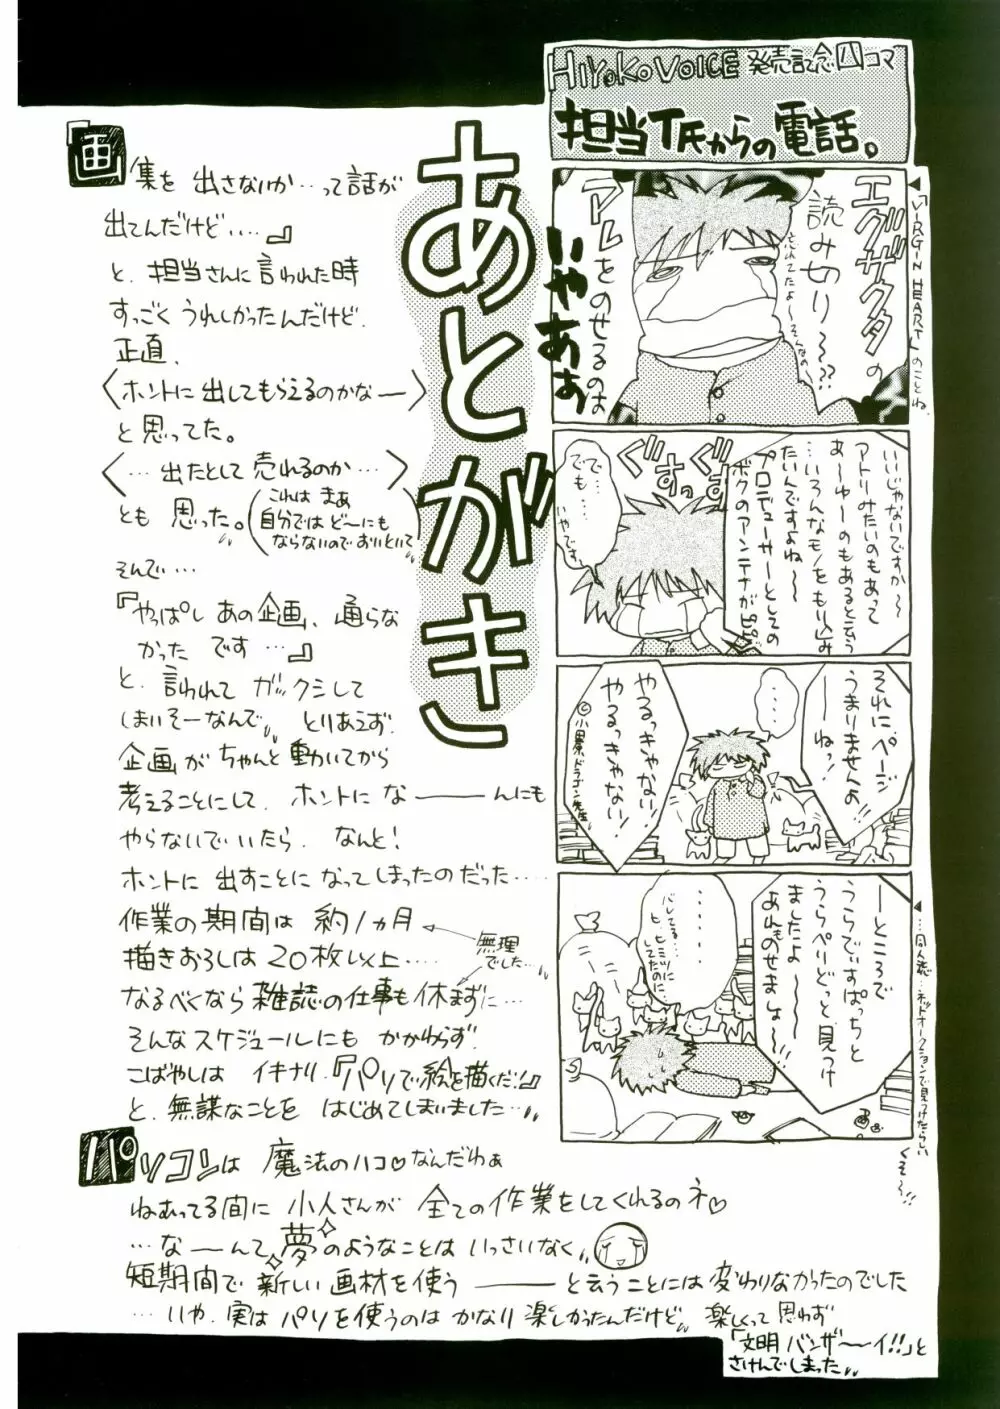 HIYOKO VOICE 発売記念四コマ
担当T氏からの電話。
エグザクタの
読み切り～～??
忘れてたよ～～そんなの
アレをのせるのは
いやぁぁ
◀『VIRGIN HEART』のことね。
いいじゃないですか～
アトリみたいのもあって
あ～ゆーのもあると云う
…いろんなモノをもり込み
たいんですよね～
プロデューサーとしての
ボクのアンテナが
ぐずぐずっ
でで…
でも…
いやです
それに、ページ
うまりませんよ
――ねっ!
・・・・
やるっきゃない!
やるっきゃない!
©小田原ドラゴン先生
―ところで
うらでぃすぱっちと
うらぺりどっと見つけ
ましたよ～～
あれものせましょ～～!!
・・・・・・・
バレてる…
ヒ…ヒミツに
してたのに
◀…同人誌…ネットオークションで見つけたらしい
くそ～～!!
あとがき
『画集を出さないか…って話が
出てんだけど….』
と、担当さんに言われた時
すっごくうれしかったんだけど、
正直、
〈ホントに出してもらえるのかなー〉
と思ってた。
〈…出たとして売れるのか…〉
とも思った。(これはまぁ
自分ではど～にも
ならないのでおいといて)
そんで…
『やっぱしあの企画、通らな
かったです…』
と、言われてガックシして
しまいそーなんで、とりあえず、
企画がちゃんと動いてから
考えることにして、ホントにな――んにも
やらないでいたら、なんと!
ホントに出すことになってしまったのだった……
作業の期間は約1ヵ月
描きおろしは20枚以上….
←無理でした…
なるべくなら雑誌の仕事も休まずに…
そんなスケジュールにもかかわらず、
こばやしはイキナリ、『パソで絵を描くだ!』
と、無謀なことをはじめてしまいました…
パソコンは魔法のハコ♡なんだわぁ
ねむってる間に小人さんが全ての作業をしてくれるのネ♡
…な――んて夢のようなことはいっさいなく、
短期間で新しい画材を使う――と云うことには変わりなかったのでした
…いや、実はパソを使うのはかなり楽しかったんだけど、楽しくって思わず
「文明バンザ～～イ!!」と
さけんでしまった